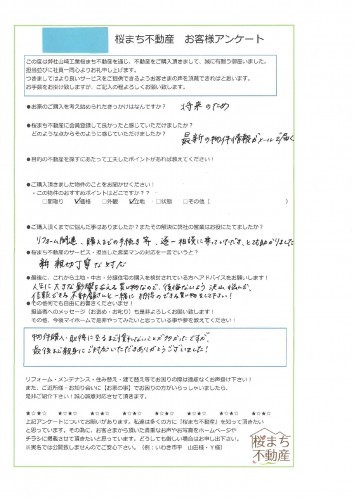 桜まち不動産　お客様アンケート
この度は弊社山崎工業桜まち不動産を通じ、不動産をご購入頂きまして、誠に有難う御座いました。
担当並びに社員一同心よりお礼申し上げます。
つきましてはより良いサービスをご提供できるようお客様のお声を頂戴できればと思います。
お手数をお掛け致しますが、ご記入の程よろしくお願い致します。
●お家のご購入を考え始められたきっかけはなんですか？　将来のため
●桜まち不動産に会員登録して良かったと感じていただけましたか？
どのような点からそのように感じていただけましたか？　最新の物件情報がメールで届く
●目的の不動産を探すにあたって工夫したポイントがあれば教えてください！
●ご購入頂きました物件のことをお聞かせください！
・この物件のおすすめポイントはどこですか？？
□愛着地　☑価格　□外観　☑立地　□状態　□その他【　】
●ご購入頂くまでに悩んだ事はありましたか？またその解決に弊社の営業はお役にたてましたか？
リフォーム関連、購入までの手続き等、逐一相談に乗っていただき、とても助かりました
●桜まち不動産のサービス・担当した営業マンの対応を一言でいうと？
親切丁寧な対応
●最後に、これから土地・中古・分譲住宅の購入を検討されている方へアドバイスをお願いします！
人生に大きな影響を与える買い物なので、後悔しないよう沢山悩んで、
信頼できる不動産さんと一緒に納得のできる買い物をして下さい！
●その他何でも自由にお書きくださいませ！
販売者へのメッセージ（お褒め・お叱り）も是非よろしくお願い致します！
その他、今後マイホームで是非やってみたいと思っている事や夢を教えてください！
物件購入・取得に至るまで大変なことが多かったですが、
最後まで親身にご対応いただきありがとうございました！
リフォーム・メンテナンス・住み替え・建て替え等でお困りの際は遠慮なくお声掛け下さい！
また、ご近所様・お知り合いに【お家の事】でお困りの方がいらっしゃいましたら、
是非ご紹介下さい！誠心誠意対応させて頂きます。
★☆★☆　★☆★☆　★☆★☆　★☆★☆　★☆★☆　★☆★☆
上記アンケートについてのお願いがあります。私達は多くの方に【桜まち不動産】を知って頂きたい
と思っています。その為に、お客さまから頂いた貴重なお声やお写真をホームページや
チラシに掲載させて頂きたいと思っています。どうしても厳しい場合はお申し出下さい。
※実名では公開致しませんのでご安心下さい。（例：いわき市平　山田様・Y様）
桜まち
不動産